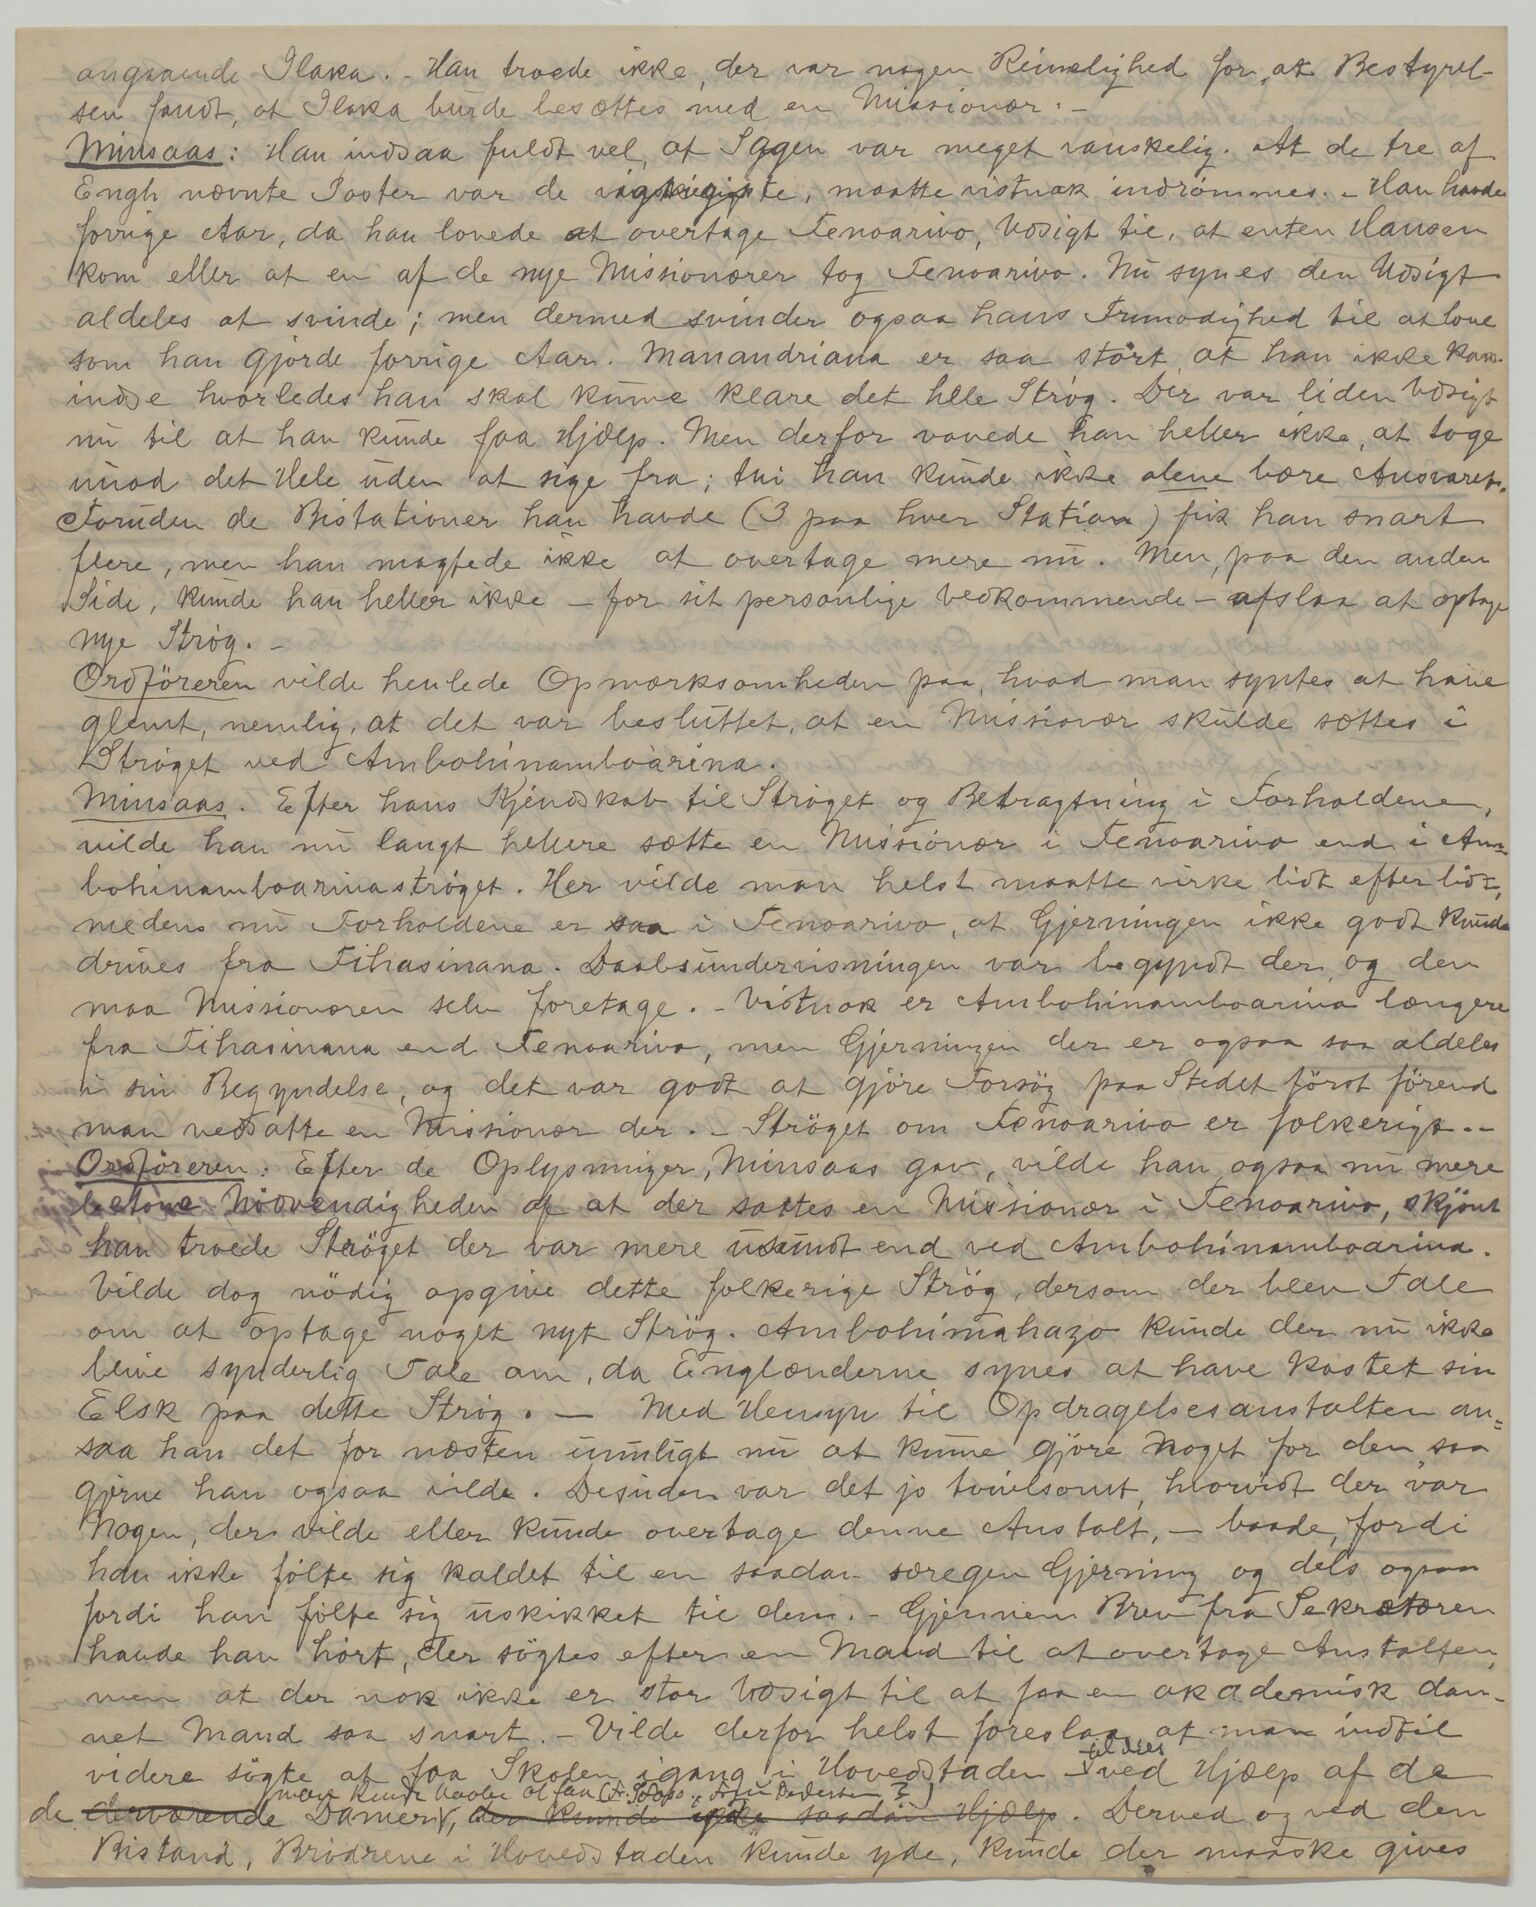 angaaende Ilaka. - Han troede ikke, der var nogen Rimelighed for, at Bestyrel-
sen fandt, at Ilaka burde besættes med en Missionær. -
Minsaas: Han indsaa fuldt vel, at Sagen var meget vanskelig. At de tre af
Engh nævnte Poster var de vigtigste, maatte vistnok indrømmes. - Han havde
forrige Aar, da han lovede at overtage Fenoarivo, Udsigt til, at enten Hansen
kom eller at en af de nye Missionærer tog Fenoarivo. Nu synes den Udsigt
aldeles at svinde; men dermed svinder ogsaa hans Frimodighed til at love
som han gjorde forrige Aar. Manandriana er saa stort, at han ikke kan
indse hvorledes han skal kunne klare det hele Strøg. Der var liden Udsigt
nu til at han kunde faa Hjælp. Men derfor vovede han heller ikke, at tage
imod det Hele uden at sige fra; thi han kunde ikke alene bære Ansvaret.
Foruden de Bistationer han havde (3 paa hver Station) fik han snart
flere, men han magtede ikke at overtage mere nu. Men, paa den anden
Side, kunde han heller ikke - for sit personlige Vedkommende - afslaa at optage
nye Strøg. -
Ordføreren vilde henlede Opmærksomheden paa, hvad man syntes at have
glemt, nemlig, at det var besluttet, at en Missionær skulde sættes i
Strøget ved Ambohinamboarina.
Minsaas. Efter hans Kjendskab til Strøget og Betragtning i Forholdene,
vilde han nu langt hellere sætte en Missionær i Fenoarivo end i Am-
bohinamboarinastrøget. Her vilde man helst maatte virke lidt efter lidt,
medens nu Forholdene er saa i Fenoarivo, at Gjerningen ikke godt kunde
drives fra Fihasinana. Daabsundervisningen var begyndt der, og den
maa Missionæren selv foretage. - Vistnok er Ambohinamboarina længere
fra Fihasinana end Fenoarivo, men Gjerningen der er ogsaa saa aldeles
i sin Begyndelse, og det var godt at gjøre Forsøg paa Stedet først førend
man nedsatte en Missionær der. - Strøget om Fenoarivo er folkerigt. -
Ordføreren: Efter de Oplysninger, Minsaas gav, vilde han ogsaa nu mere
betone Nødvendigheden af at der sattes en Missionær i Fenoarivo, skjønt
han troede Strøget der var mere usundt end ved Ambohinamboarina.
Vilde dog nødig opgive dette folkerige Strøg, dersom der blev Tale
om at optage noget nyt Strøg. Ambohimahazo kunde der nu ikke
blive synderlig Tale om, da Englænderne synes at have kastet sin
Elsk paa dette Strøg. - Med Hensyn til Opdragelsesanstalten an=
saa han det for næsten umuligt nu at kunne gjøre noget for den saa
gjerne han ogsaa vilde. Desuden var det jo tvivlsomt, hvorvidt der var
Nogen, der vilde eller kunde overtage denne Anstalt, - baade, fordi
han ikke følte sig kaldet til en saadan særegen Gjerning og dels ogsaa
fordi han følte sig uskikket til den. - Gjennem Brev fra Sekretæren
havde han hørt, der søgtes efter en Mand til at overtage Anstalten,
men at der nok ikke er stor Udsigt til at faa en akademisk dan-
net Mand saa snart. - Vilde derfor helst foreslaa, at man indtil
videre søgte at faa Skolen igang i Hovedstaden ved Hjælp af de
man kunde haabe at faa
de derværende Damer, der kunde yde saadan Hjælp. Derved og ved den
Bistand, Brødrene i Hovedstaden kunde yde, kunde der maaske gives